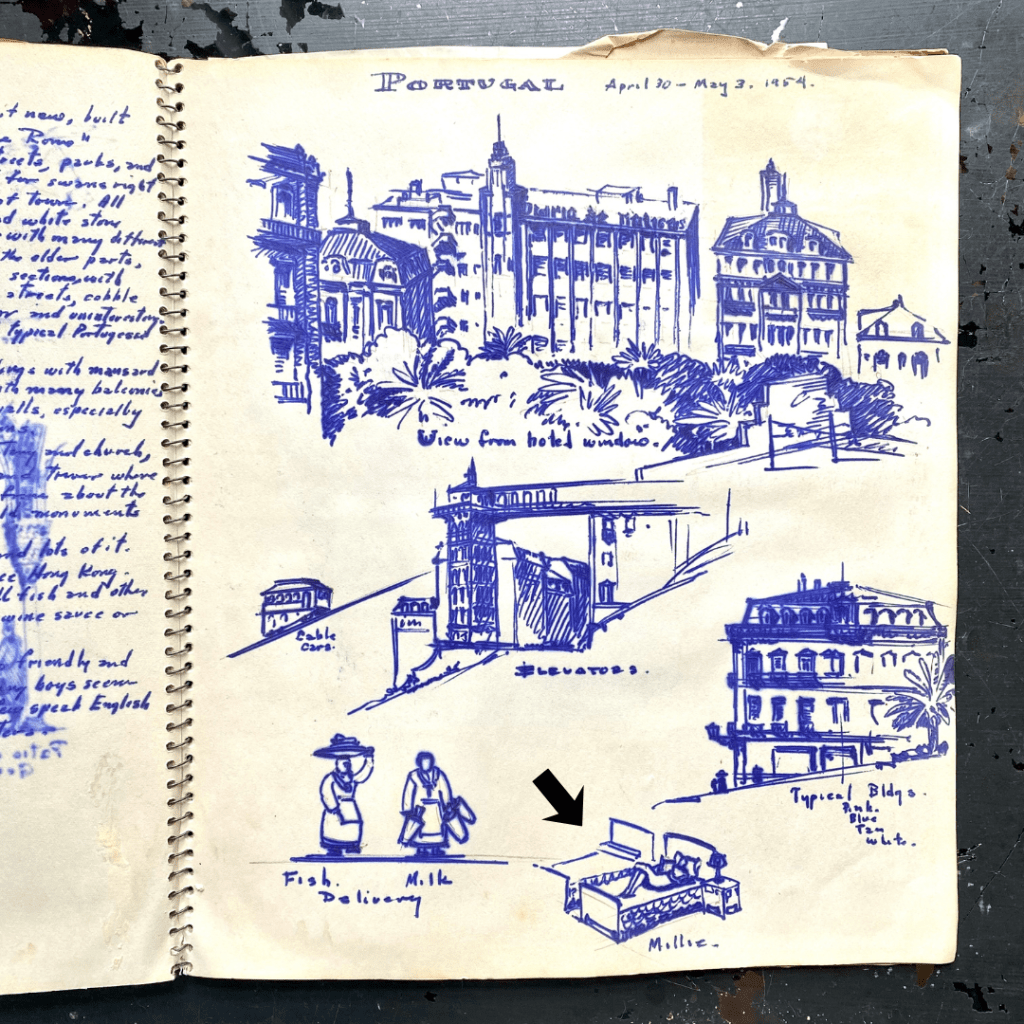 t new, built
e Roma"
streets, parks, and
for swans right
of town. All
d white stone
with many different
the older parts,
sections with
streets, cobble
and uninteresting.
typical Portugese
ings with mansard
ith many balconie
walls, especially
and church,
where
about the
monuments
and lots of it.
Hong Kong.
fish and other
wine sauce or
friendly and
boys seem
speak English
PORTUGAL April 30 - May 3, 1954.
"View from hotel window".
Cable
Cars.
ELEVATORS.
Typical Bldgs.
Pink.
Blue
Tan
White.
Fish. Milk
Delivery
Millie.